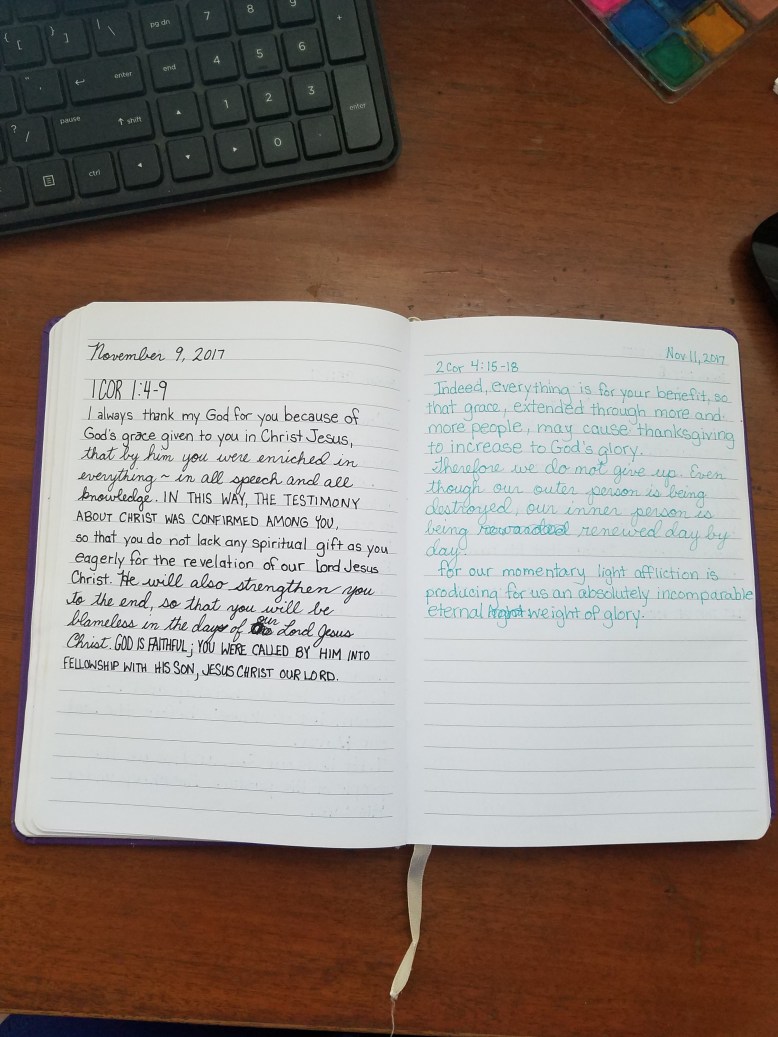 { [
} ]
| \
pg dn
7
8
9
+
" '
enter
end
4
5
6
? /
pause
shift
1
2
3
enter
ctrl
0
.
November 9, 2017
1 COR 1:4-9
I always thank my God for you because of
God's grace given to you in Christ Jesus,
that by him you were enriched in
everything ~ in all speech and all
knowledge. IN THIS WAY, THE TESTIMONY
ABOUT CHRIST WAS CONFIRMED AMONG YOU,
so that you do not lack any spiritual gift as you
eagerly for the revelation of our lord Jesus
Christ. He will also strengthen you
to the end, so that you will be
blameless in the day of our Lord Jesus
Christ. GOD IS FAITHFUL; YOU WERE CALLED BY HIM INTO
FELLOWSHIP WITH HIS SON, JESUS CHRIST OUR LORD.
Nov 11, 2017
2 Cor 4:15-18
Indeed, everything is for your benefit, so
that grace, extended through more and
more people, may cause thanksgiving
to increase to God's glory.
Therefore we do not give up. Even
though our outer person is being
destroyed, our inner person is
being rewarded renewed day by
day.
for our momentary light affliction is
producing for us an absolutely incomparable
eternal weight of glory.